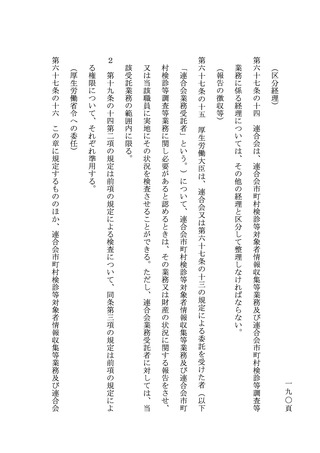 一九〇頁
（区分経理）
第六十七条の十四　連合会は、連合会市町村検診等対象者情報収集等業務及び連合会市町村検診等調査等
業務に係る経理については、その他の経理と区分して整理しなければならない。
（報告の徴収等）
第六十七条の十五　厚生労働大臣は、連合会又は第六十七条の十三の規定による委託を受けた者（以下
「連合会業務受託者」という。）について、連合会市町村検診等対象者情報収集等業務及び連合会市町
村検診等調査等業務に関し必要があると認めるときは、その業務又は財産の状況に関する報告をさせ、
又は当該職員に実地にその状況を検査させることができる。ただし、連合会業務受託者に対しては、当
該受託業務の範囲内に限る。
２　第十九条の十四第二項の規定は前項の規定による検査について、同条第三項の規定は前項の規定によ
る権限について、それぞれ準用する。
（厚生労働省令への委任）
第六十七条の十六　この章に規定するもののほか、連合会市町村検診等対象者情報収集等業務及び連合会